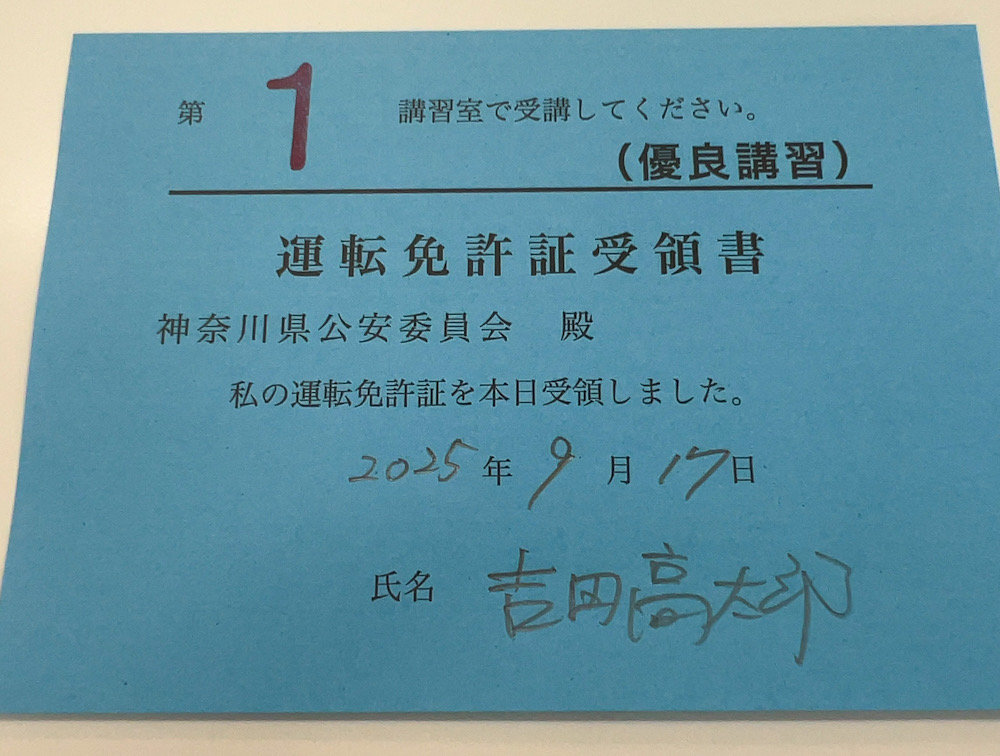 第 1 講習室で受講してください。
(優良講習)
運転免許証受領書
神奈川県公安委員会 殿
私の運転免許証を本日受領しました。
2025年 9月 17日
氏名 吉田高太郎